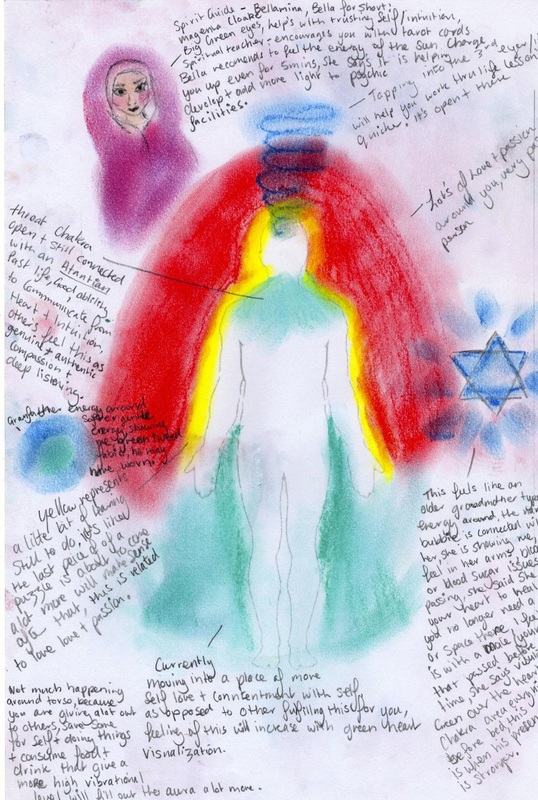 Spirit Guide - Bellamina, Bella for short!
magenta Cloak
Big Green eyes, help's with trusting self/intuition,
spiritual teacher - encourages you with tarot cards
Bella recomends to feel the energy of the sun. Charge
you up even for 5 mins, she says it is helping
develop + add more light to psychic
facilities.
Tapping into the 3rd eye/
will help you work thru life lessons
quicker. It's open + there
Lot's of Love + passion
around you, very
person
throat Chakra
open + still connected
with an Atlantian
Past life, Good ability
to communicate from
Heart + intuition,
others feel this as
genuine + authentic
compassion +
deep listening.
Grandfather energy around
energy, showing
me green
he may
have worn
yellow represents
a little bit of healing
still to do, it's like
the last peice of a
puzzle is about to come
alot more will make sense
after that, this is related
to love love + passion.
This feels like an
older grandmother type
energy around, the
bubble is connected with
her, she is showing me,
feel in her arms, blood
or blood sugar issues
passing, she said she
your heart to heart
you no longer need a
or space there, I feel
is with a male young
that passed before
time, she says visualize
Green over the heart
Chakra area every night
before bed, this
is when his presence
is stronger.
Currently
moving into a place of more
self love + contentment with self,
as opposed to other fulfilling this for you,
feeling of this will increase with green heart
visualization.
Not much happening
around torso, because
you are giving alot out
to others, save some
for self + doing things
+ consume food +
drink that give a
more high vibrational
level will fill out the aura alot more.